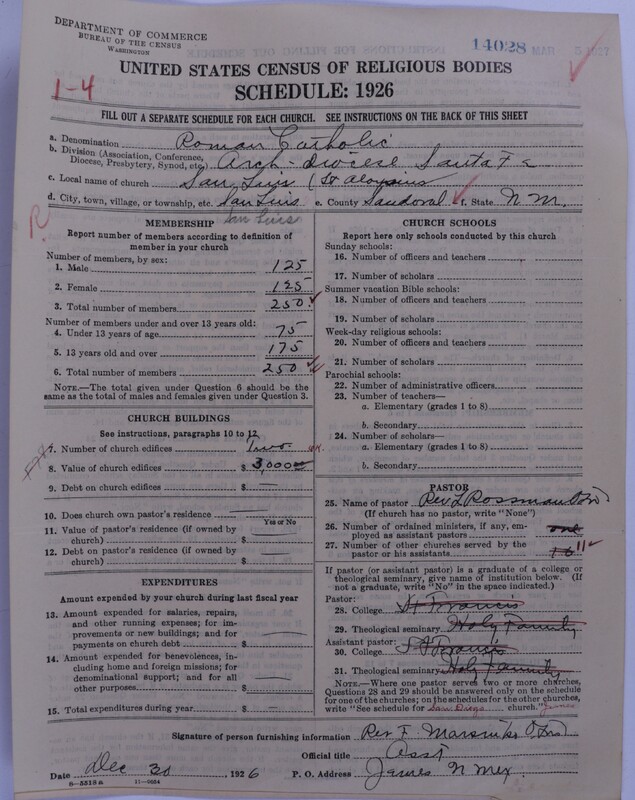 DEPARTMENT OF COMMERCE
BUREAU OF THE CENSUS
WASHINGTON
14028 MAR 5 1927
UNITED STATES CENSUS OF RELIGIOUS BODIES
SCHEDULE: 1926
1-4
FILL OUT A SEPARATE SCHEDULE FOR EACH CHURCH. SEE INSTRUCTIONS ON THE BACK OF THIS SHEET
a. Denomination Roman Catholic
b. Division (Association, Conference, Diocese, Presbytery, Synod, etc.) Arch-diocese Santa Fe
c. Local name of church San Luis (St Aloysius
d. City, town, village, or township, etc. San Luis e. County Sandoval f. State N M.
San Luis
R
MEMBERSHIP
Report number of members according to definition of
member in your church
Number of members, by sex:
1. Male 125
2. Female 125
3. Total number of members 250
Number of members under and over 13 years old:
4. Under 13 years of age 75
5. 13 years old and over 175
6. Total number of members 250
NOTE.—The total given under Question 6 should be the
same as the total of males and females given under Question 3.
CHURCH BUILDINGS
See instructions, paragraphs 10 to 12
7. Number of church edifices Two
8. Value of church edifices $ 3,000
9. Debt on church edifices $
10. Does church own pastor's residence
Yes or No
11. Value of pastor's residence (if owned by
church) $
12. Debt on pastor's residence (if owned by
church) $
EXPENDITURES
Amount expended by your church during last fiscal year
13. Amount expended for salaries, repairs,
and other running expenses; for im-
provements or new buildings; and for
payments on church debt $
14. Amount expended for benevolences, in-
cluding home and foreign missions; for
denominational support; and for all
other purposes $
15. Total expenditures during year $
CHURCH SCHOOLS
Report here only schools conducted by this church
Sunday schools:
16. Number of officers and teachers
17. Number of scholars
Summer vacation Bible schools:
18. Number of officers and teachers
19. Number of scholars
Week-day religious schools:
20. Number of officers and teachers
21. Number of scholars
Parochial schools:
22. Number of administrative officers
23. Number of teachers—
a. Elementary (grades 1 to 8)
b. Secondary
24. Number of scholars—
a. Elementary (grades 1 to 8)
b. Secondary
PASTOR
25. Name of pastor Rev L Rossman
(If church has no pastor, write "None")
26. Number of ordained ministers, if any, em-
ployed as assistant pastors one
27. Number of other churches served by the
pastor or his assistants 16 11
If pastor (or assistant pastor) is a graduate of a college or
theological seminary, give name of institution below. (If
not a graduate, write "No" in the space indicated.)
Pastor:
28. College St Francis
29. Theological seminary Holy Family
Assistant pastor:
30. College St Francis
31. Theological seminary Holy Family
NOTE.—Where one pastor serves two or more churches,
Questions 28 and 29 should be answered only on the schedule
for one of the churches; on the schedules for the other churches,
write "See schedule for San Diego church." Jemez
Signature of person furnishing information Rev. F.
Official title Asst
Date Dec 30, 1926 P. O. Address James N Mex.
8-5518a 11-9664